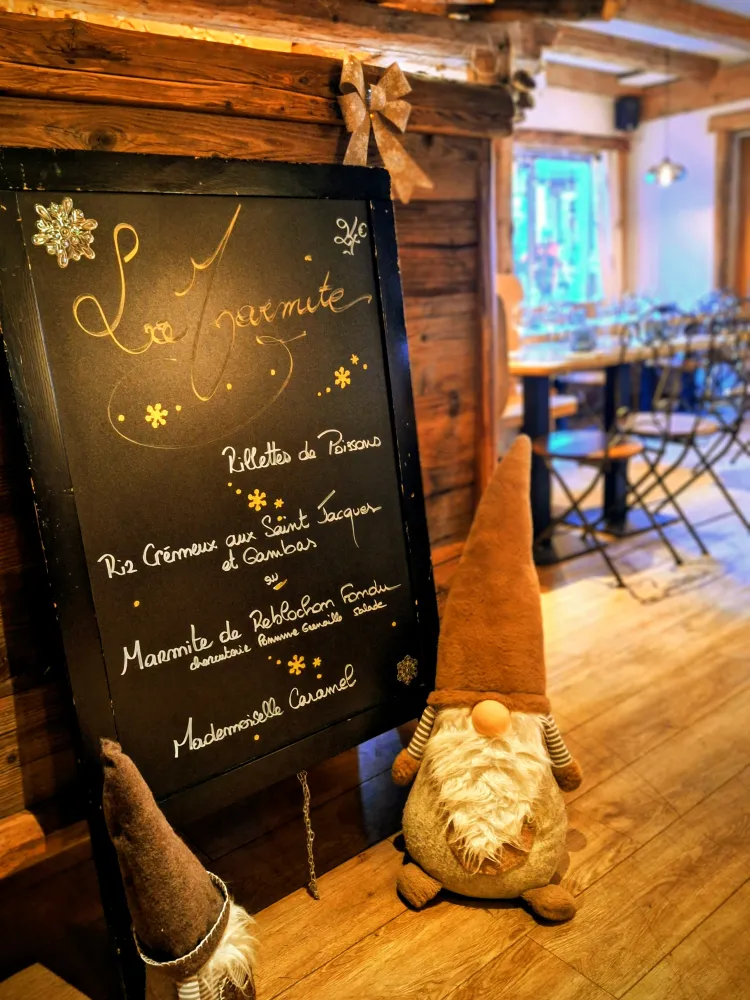 La Marmite
Rillettes de Poissons
Riz Crémeux aux Saint Jacques
et Gambas
ou
Marmite de Reblochon Fondu
charcuterie Pomme Grenaille Salade
Mademoiselle Caramel